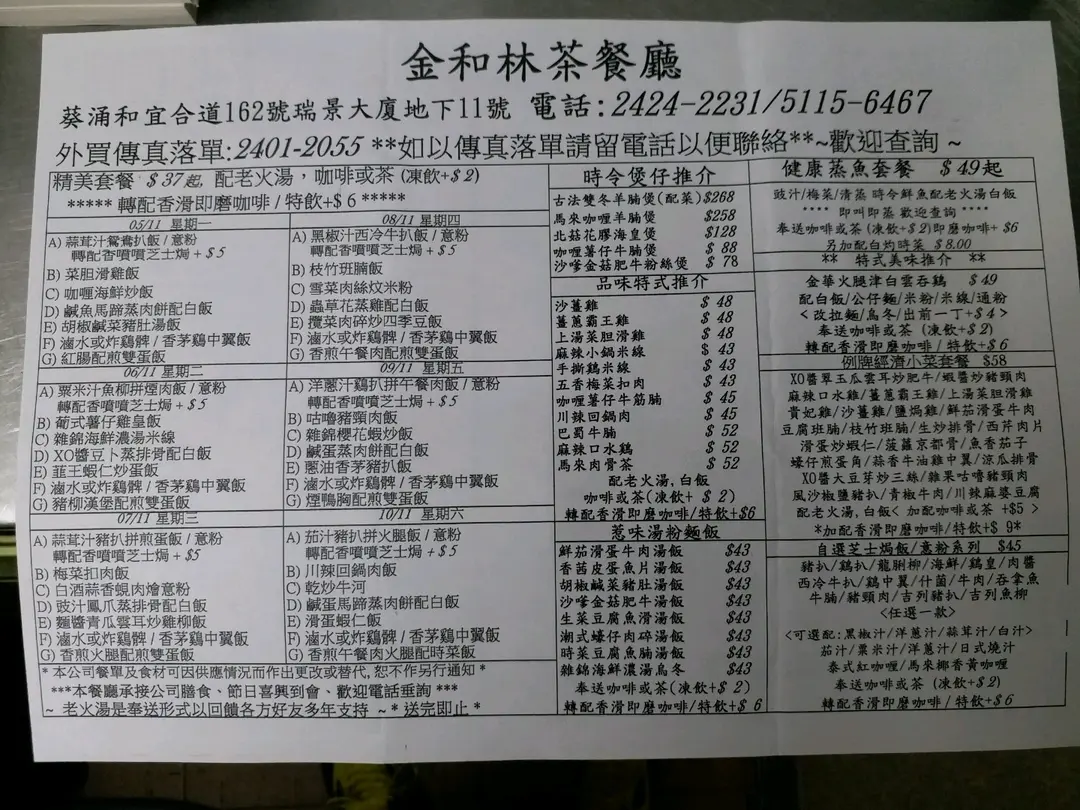 金和林茶餐廳
葵涌和宜合道162號瑞景大廈地下11號 電話:2424-2231/5115-6467
外買傳真落單:2401-2055 **如以傳真落單請留電話以便聯絡**~歡迎查詢 ~
精美套餐 $37起, 配老火湯，咖啡或茶 (凍飲+$2)
***** 轉配香滑即磨咖啡 / 特飲+$ 6 *****
05/11 星期一
A) 蒜茸汁鴛鴦扒飯 / 意粉
轉配香噴噴芝士焗 + $ 5
B) 菜胆滑雞飯
C) 咖喱海鮮炒飯
D) 鹹魚馬蹄蒸肉餅配白飯
E) 胡椒鹹菜豬肚湯飯
F) 滷水或炸鷄髀 / 香茅鷄中翼飯
G) 紅腸配煎雙蛋飯
06/11 星期二
A) 粟米汁魚柳拼煙肉飯 / 意粉
轉配香噴噴芝士焗 + $ 5
B) 葡式薯仔雞皇飯
C) 雜錦海鮮濃湯米線
D) XO醬豆卜蒸排骨配白飯
E) 韮王蝦仁炒蛋飯
F) 滷水或炸鷄髀 / 香茅鷄中翼飯
G) 豬柳漢堡配煎雙蛋飯
07/11 星期三
A) 蒜茸汁豬扒拼煎蛋飯 / 意粉
轉配香噴噴芝士焗 +$5
B) 梅菜扣肉飯
C) 白酒蒜香蜆肉燴意粉
D) 豉汁鳳爪蒸排骨配白飯
E) 麵醬青瓜雲耳炒雞柳飯
F) 滷水或炸鷄髀 / 香茅鷄中翼飯
G) 香煎火腿配煎雙蛋飯
08/11 星期四
A) 黑椒汁西冷牛扒飯 / 意粉
轉配香噴噴芝士焗 + $ 5
B) 枝竹班腩飯
C) 雪菜肉絲炆米粉
D) 蟲草花蒸雞配白飯
E) 攬菜肉碎炒四季豆飯
F) 滷水或炸鷄髀 / 香茅鷄中翼飯
G) 香煎午餐肉配煎雙蛋飯
09/11 星期五
A) 洋蔥汁鷄扒拼午餐肉飯 / 意粉
轉配香噴噴芝士焗 + $ 5
B) 咕嚕豬頸肉飯
C) 雜錦櫻花蝦炒飯
D) 鹹蛋蒸肉餅配白飯
E) 蔥油香茅豬扒飯
F) 滷水或炸鷄髀 / 香茅鷄中翼飯
G) 煙鴨胸配煎雙蛋飯
10/11 星期六
A) 茄汁豬扒拼火腿飯 / 意粉
轉配香噴噴芝士焗 + $ 5
B) 川辣回鍋肉飯
C) 乾炒牛河
D) 鹹蛋馬蹄蒸肉餅配白飯
E) 滑蛋蝦仁飯
F) 滷水或炸鷄髀 / 香茅鷄中翼飯
G) 香煎午餐肉火腿配時菜飯
* 本公司餐單及食材可因供應情況而作出更改或替代, 恕不作另行通知 *
***本餐廳承接公司膳食、節日喜興到會、歡迎電話垂詢 ***
~ 老火湯是奉送形式以回饋各方好友多年支持 ~ * 送完即止 *
時令煲仔推介
古法雙冬羊腩煲(配菜)$268
馬來咖喱羊腩煲 $258
北菇花膠海皇煲 $128
咖喱薯仔牛腩煲 $ 88
沙嗲金菇肥牛粉絲煲 $ 78
品味特式推介
沙薑雞 $ 48
薑蔥霸王雞 $ 48
上湯菜胆滑雞 $ 48
麻辣小鍋米線 $ 43
手撕鷄米線 $ 43
五香梅菜扣肉 $ 43
咖喱薯仔牛筋腩 $ 45
川辣回鍋肉 $ 45
巴蜀牛腩 $ 52
麻辣口水鷄 $ 52
馬來肉骨茶 $ 52
配老火湯, 白飯
咖啡或茶(凍飲+ $ 2)
轉配香滑即磨咖啡/特飲+$6
惹味湯粉麵飯
鮮茄滑蛋牛肉湯飯 $43
香茜皮蛋魚片湯飯 $43
胡椒鹹菜豬肚湯飯 $43
沙嗲金菇肥牛湯飯 $43
生菜豆腐魚滑湯飯 $43
潮式蠔仔肉碎湯飯 $43
時菜豆腐魚腩湯飯 $43
雜錦海鮮濃湯烏冬 $43
奉送咖啡或茶(凍飲+$ 2)
轉配香滑即磨咖啡/特飲+$ 6
健康蒸魚套餐 $49起
豉汁/梅菜/清蒸 時令鮮魚配老火湯白飯
**** 即叫即蒸 歡迎查詢 ****
奉送咖啡或茶 (凍飲+$2)即磨咖啡+ $6
另加配白灼時菜 $ 8.00
** 特式美味推介 **
金華火腿津白雲吞鷄 $49
配白飯/公仔麵/米粉/米線/通粉
< 改拉麵/烏冬/出前一丁+$4 >
奉送咖啡或茶 (凍飲+$2)
轉配香滑即磨咖啡/特飲+$ 6
例牌經濟小菜套餐 $58
XO醬翠玉瓜雲耳炒肥牛/蝦醬炒豬頸肉
麻辣口水雞/薑蔥霸王雞/上湯菜胆滑雞
貴妃雞/沙薑雞/鹽焗雞/鮮茄滑蛋牛肉
豆腐班腩/枝竹班腩/生炒排骨/西芹肉片
滑蛋炒蝦仁/菠蘿京都骨/魚香茄子
蠔仔煎蛋角/蒜香牛油雞中翼/涼瓜排骨
XO醬大豆芽炒三絲/雜果咕嚕豬頸肉
風沙椒鹽豬扒/青椒牛肉/川辣麻婆豆腐
配老火湯, 白飯< 加配咖啡或茶 +$5 >
*加配香滑即磨咖啡/特飲+$ 9*
自選芝士焗飯/意粉系列 $45
豬扒/鷄扒/龍脷柳/海鮮/鷄皇/肉醬
西冷牛扒/鷄中翼/什菌/牛肉/吞拿魚
牛腩/豬頸肉/吉列豬扒/吉列魚柳
<任選一款>
<可選配:黑椒汁/洋蔥汁/蒜茸汁/白汁>
茄汁/粟米汁/洋蔥汁/日式燒汁
泰式紅咖喱/馬來椰香黃咖喱
奉送咖啡或茶 (凍飲+$2)
轉配香滑即磨咖啡/特飲+$6